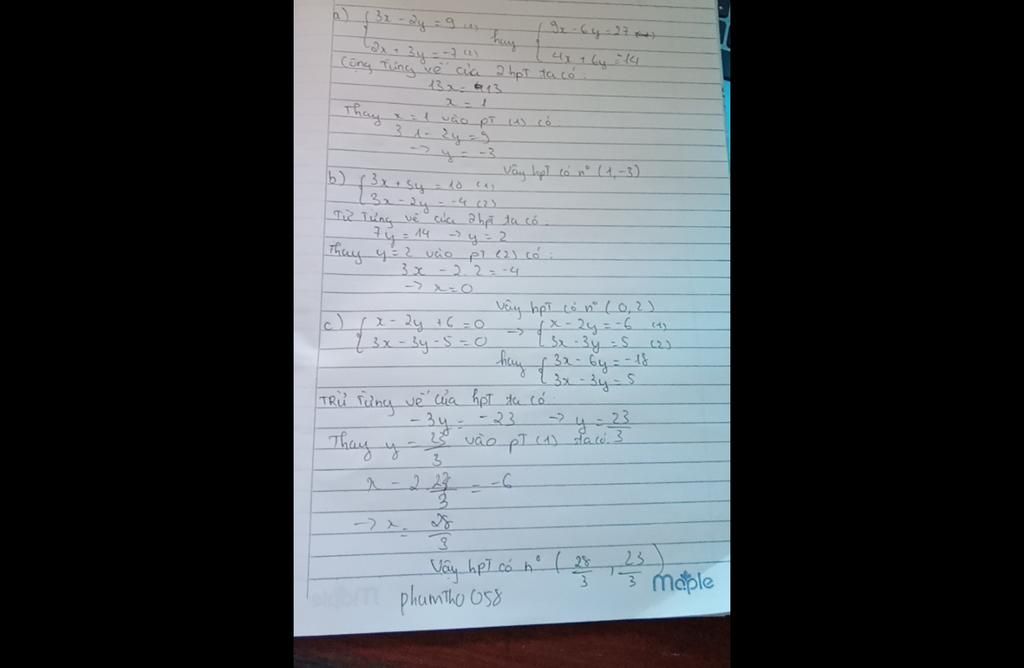 a) { 3x - 2y = 9 (1) hay { 9x - 6y = 27
2x + 3y = -7 (2) 4x + 6y = -14
Cộng từng vế của 2hpt ta có:
13x = 13
x = 1
Thay x = 1 vào pT (1) có
3.1 - 2y = 9
-> y = -3
Vậy hpT có nº (1,-3)
b) { 3x + 5y = 10 (1)
3x - 2y = -4 (2)
Từ từng vế của 2hpt ta có:
7y = 14 -> y = 2
Thay y = 2 vào pT (2) có:
3x - 2.2 = -4
-> x = 0
Vậy hpT có nº (0,2)
c) { x - 2y + 6 = 0 -> { x - 2y = -6 (1)
3x - 3y - 5 = 0 3x - 3y = 5 (2)
hay { 3x - 6y = -18
3x - 3y = 5
TRừ từng vế của hpT ta có
-3y = -23 -> y = 23/3
Thay y = 23/3 vào pT (1) ta có:
x - 2.23/3 = -6
-> x = 28/3
Vậy hpT có nº (28/3, 23/3)
Maple
phamtho058